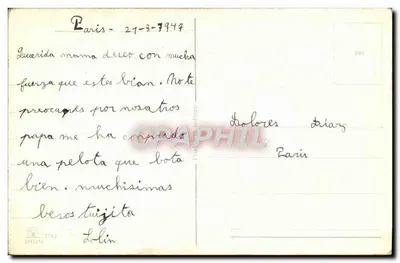 Paris - 21-3-1947
Querida mama deseo con mucha
fuerza que estes bian. No te
preocupes por nosotros
papa me ha comprado
una pelota que bota
bien. muchisimas
besos tuijita
Lolin
Dolores Diaz
Paris
CPAPHIL